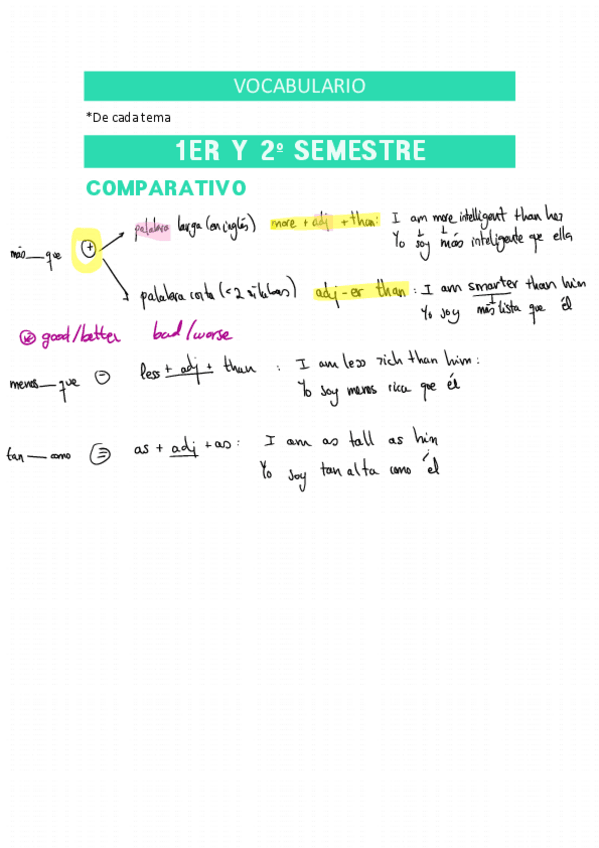 VOCABULARIO
*De cada tema
1ER Y 2º SEMESTRE
COMPARATIVO
palabra larga (en inglés) more + adj + than: I am more intelligent than her
Yo soy más inteligente que ella
más__que +
palabra corta (<2 sílabas) adj-er than: I am smarter than him
Yo soy más lista que él
good/better bad/worse
menos__que - less + adj + than : I am less rich than him:
Yo soy menos rica que él
tan__como = as + adj + as: I am as tall as him
Yo soy tan alta como él